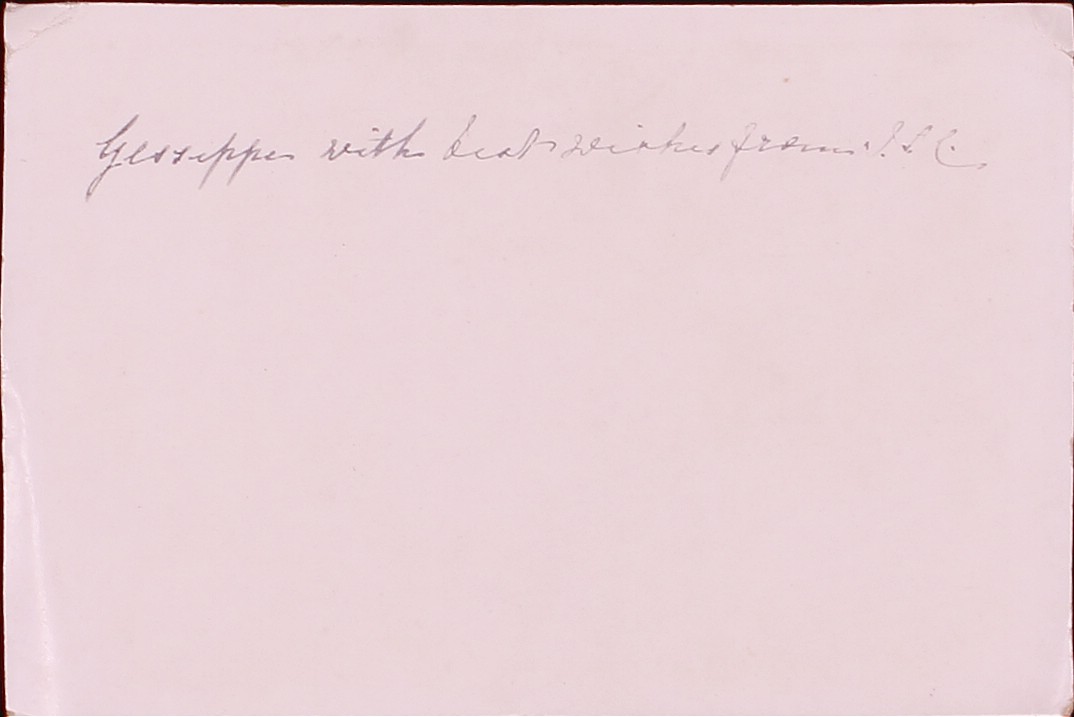 Gesseppe with best wishes from J. L. C.